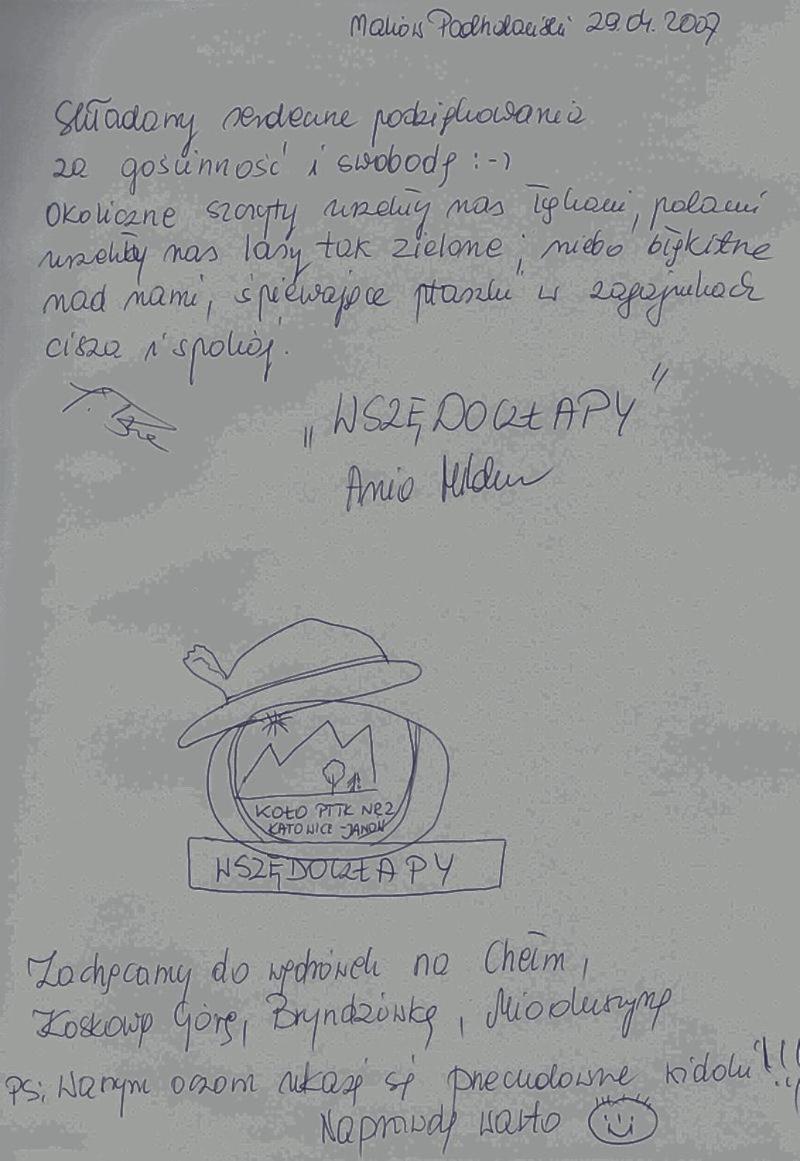 Maków Podhalański 29.04.2007
Składamy serdeczne podziękowania
za gościnność i swobodę :-)
Okoliczne szczyty urzekły nas łąkami, polami
urzekły nas lasy tak zielone, niebo błękitne
nad nami, śpiewające ptaszki w zagajnikach
cisza i spokój.
„WSZĘDOCZŁAPY”
Ania
KOŁO PTTK NR 2
KATOWICE-JANÓW
WSZĘDOCZŁAPY
Zachęcamy do wędrówek na Chełm,
Koskową Górę, Bryndzówkę, Mioduszynę
PS: Waszym oczom ukażą się przecudowne widoki!!!
Naprawdę warto